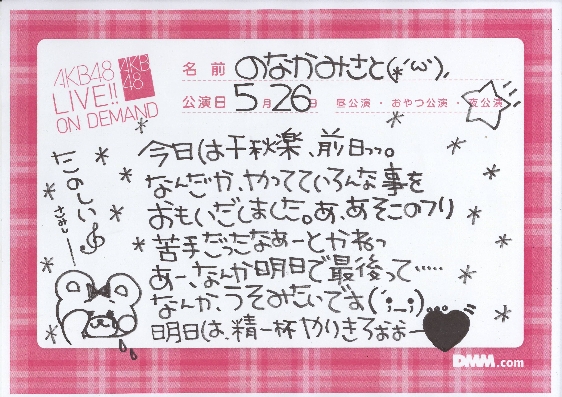 AKB48
LIVE!!
ON DEMAND
AKB
48
名前 のなかみさと(*´ω`)、
公演日 5月26日 昼公演・おやつ公演・夜公演
今日は千秋楽、前日っっ。
なんだか、やってていろんな事を
おもいだしました。あ、あそこのフリ
苦手だったなあーとかねっ
あー、なんか明日で最後って……
なんか、うそみたいです(´;_;`)
明日は、精一杯やりきろぉぉー
たのしい
さみしー
DMM.com